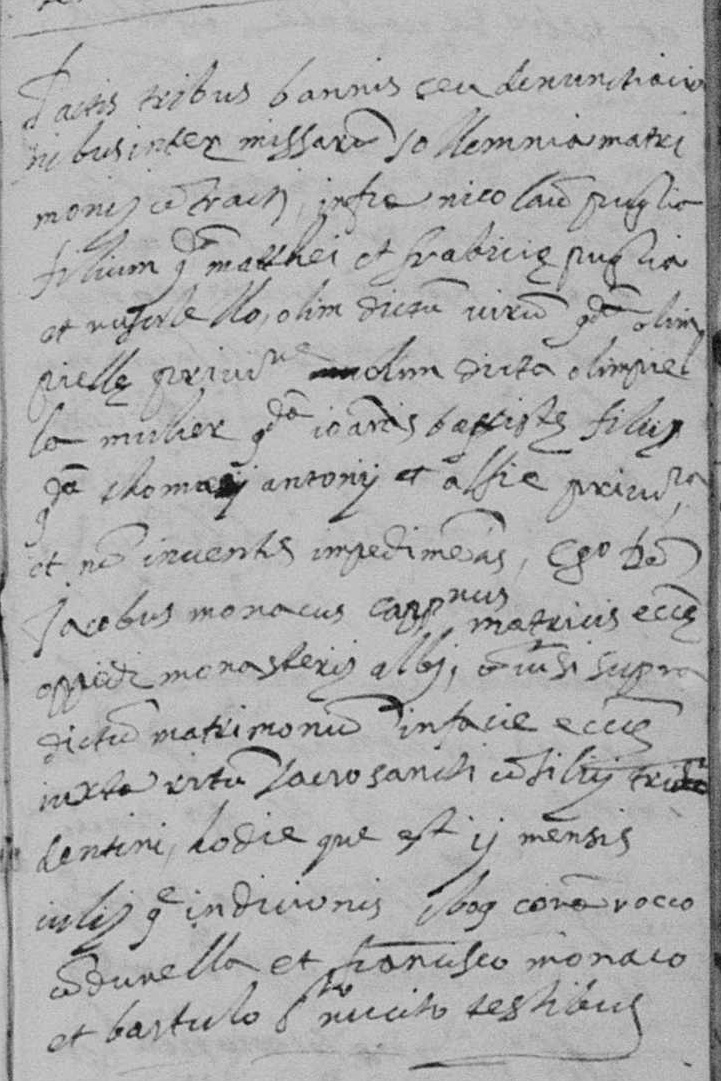 Factis tribus bannis ceu denunctiacio
nibus inter missarũ sollemnia matri
monij cõtracti, infra nicolaũ puglia
filium q̃ matthei et fvabricię puglia
et olim dictũ virũ qdã olim
piellę olim dicta olimpiel
la mulier qdã ioãnis baptistę filij
qdã thomasij antonij et
et nõ inventis impedimẽtis, Ego
Jacobus monacus cappnus matricis eccę
oppidi monasterij albi, cõiũsi supra
dictũ matrimoniũ in facie eccę
iuxta ritũ sacrosancti cõsilij tri
dentini, hodie que est ij mensis
iulij qe indicionis 1609 corã rocco
cõdurella et francisco monaco
et bartulo nucito testibus